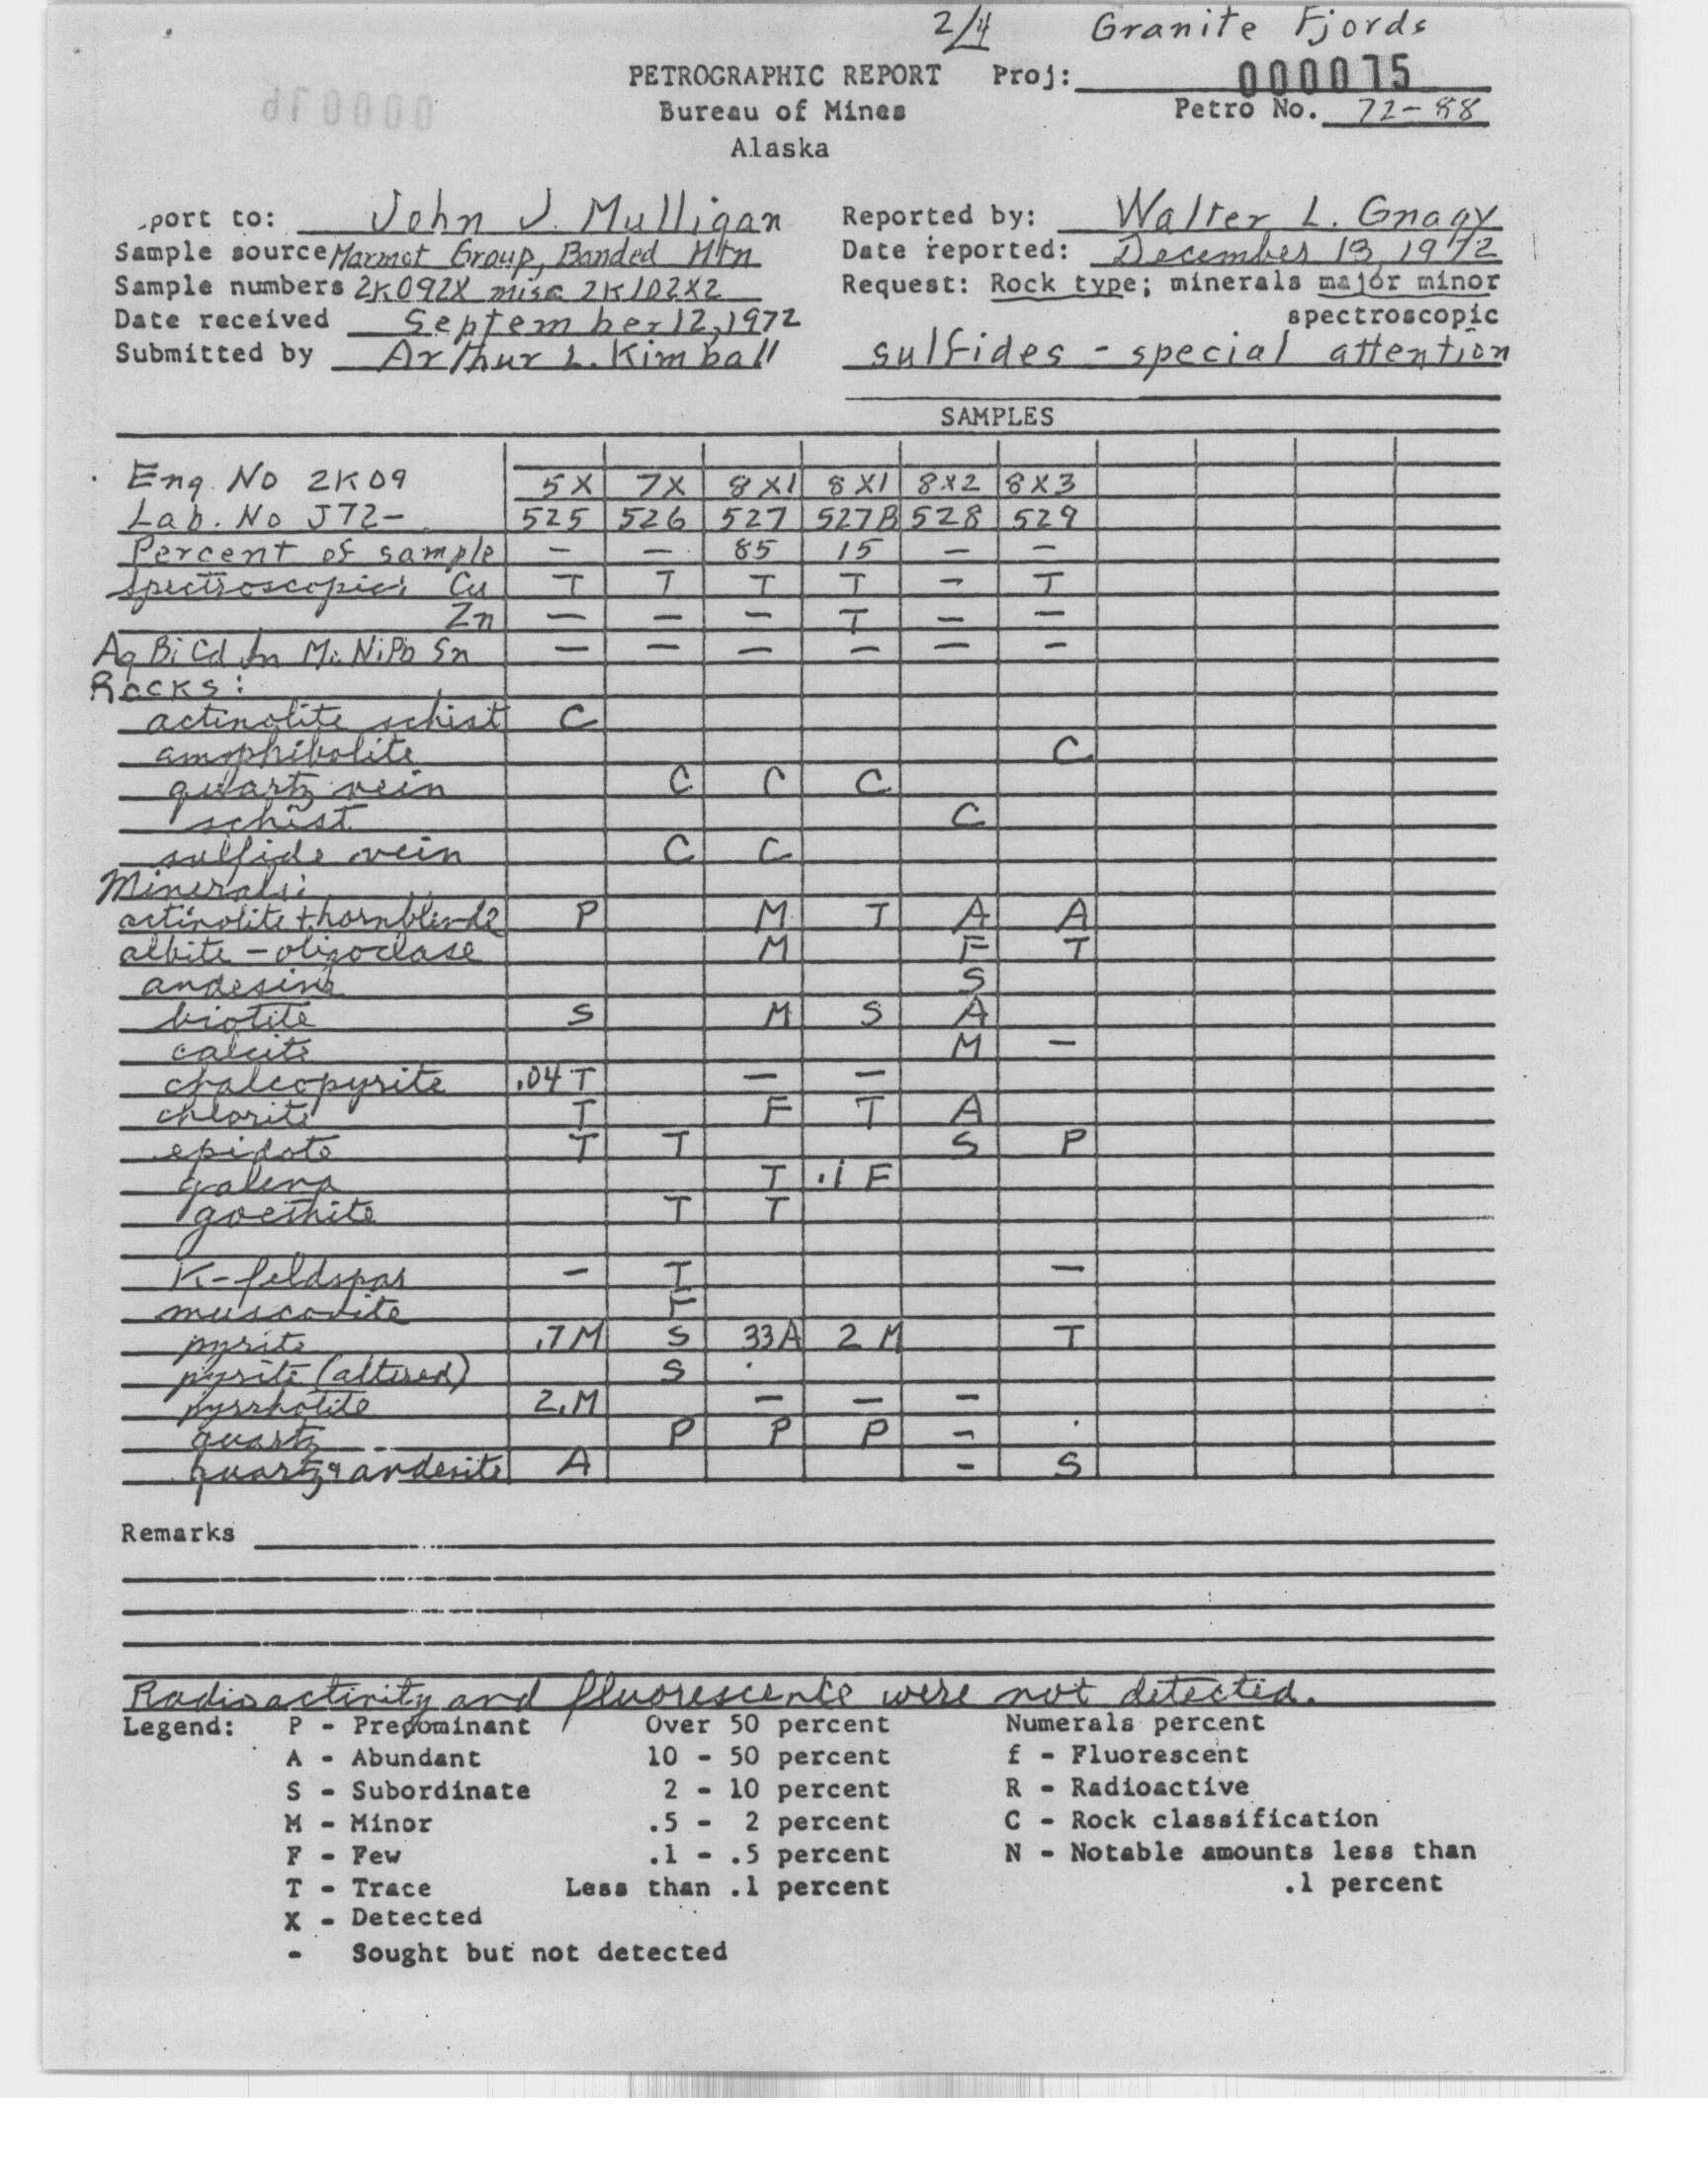 2/4 Granite Fjords
PETROGRAPHIC REPORT Proj: 000075
Bureau of Mines Petro No. 72-88
Alaska
port to: John J. Mulligan Reported by: Walter L. Gnagy
Sample source Marmot Group, Banded Mtn Date reported: December 13, 1972
Sample numbers 2K092X misc 2K102X2 Request: Rock type; minerals major minor
Date received September 12, 1972 spectroscopic
Submitted by Arthur L. Kimball sulfides - special attention
SAMPLES
Eng. No 2K09 5X 7X 8X1 8X1 8X2 8X3
Lab. No J72- 525 526 527 527B 528 529
Percent of sample - - 85 15 - -
Spectroscopic: Cu T T T T - T
Zn - - - T - -
Ag Bi Cd In Mo Ni Pb Sn - - - - - -
Rocks:
actinolite schist C
amophibolite C
quartz vein C C C
schist C
sulfide vein C C
Minerals:
actinolite + hornblende P M T A A
albite - oligoclase M F T
andesine S
biotite S M S A
calcite M -
chalcopyrite .04 T - -
chlorite T F T A
epidote T T S P
galena T .1 F
goethite T T
K-feldspar - T -
muscovite F
pyrite .7 M S 33A 2 M T
pyrite (altered) S
pyrrhotite 2. M - - -
quartz P P P -
quartz & andesite A - S
Remarks
Radioactivity and fluorescence were not detected.
Legend: P - Predominant Over 50 percent Numerals percent
A - Abundant 10 - 50 percent f - Fluorescent
S - Subordinate 2 - 10 percent R - Radioactive
M - Minor .5 - 2 percent C - Rock classification
F - Few .1 - .5 percent N - Notable amounts less than
T - Trace Less than .1 percent .1 percent
X - Detected
- Sought but not detected